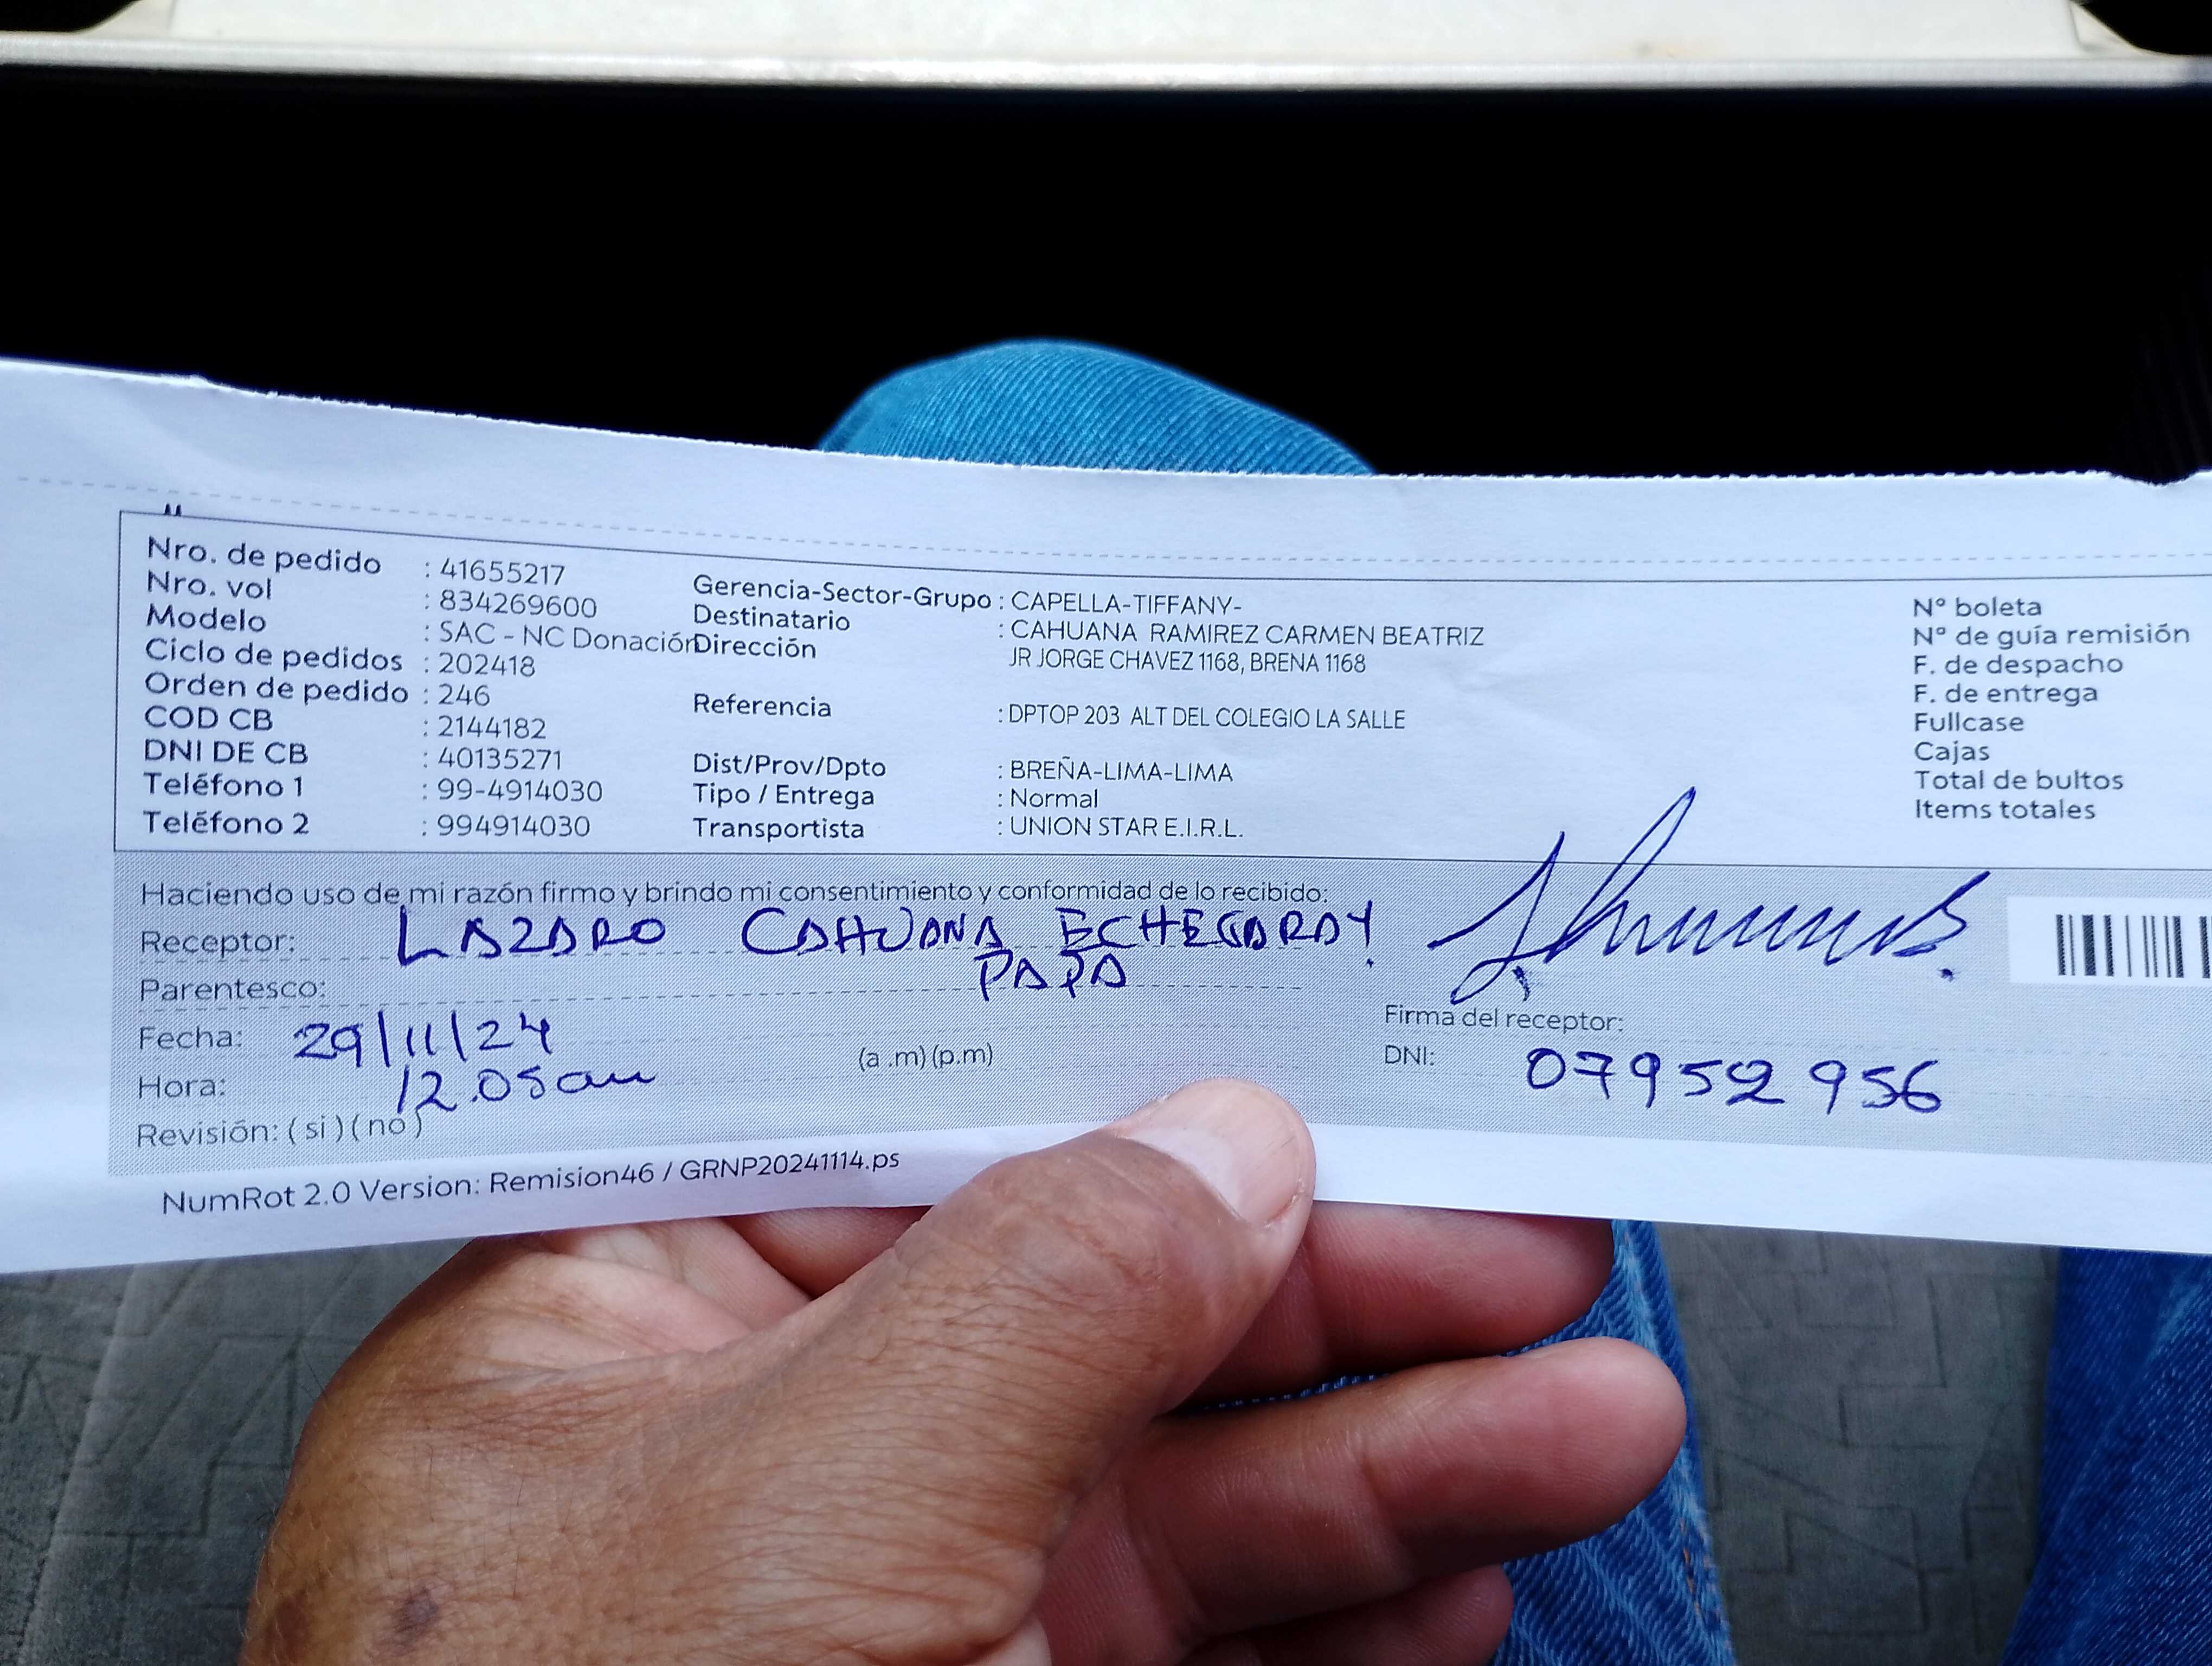 Nro. de pedido : 41655217
Nro. vol : 834269600
Modelo : SAC - NC Donación
Ciclo de pedidos : 202418
Orden de pedido : 246
COD CB : 2144182
DNI DE CB : 40135271
Teléfono 1 : 99-4914030
Teléfono 2 : 994914030
Gerencia-Sector-Grupo : CAPELLA-TIFFANY-
Destinatario : CAHUANA RAMIREZ CARMEN BEATRIZ
Dirección JR JORGE CHAVEZ 1168, BRENA 1168
Referencia : DPTOP 203 ALT DEL COLEGIO LA SALLE
Dist/Prov/Dpto : BREÑA-LIMA-LIMA
Tipo / Entrega : Normal
Transportista : UNION STAR E.I.R.L.
N° boleta
N° de guía remisión
F. de despacho
F. de entrega
Fullcase
Cajas
Total de bultos
Items totales
Haciendo uso de mi razón firmo y brindo mi consentimiento y conformidad de lo recibido:
Receptor: LAZARO CAHUANA ECHEGARAY
Parentesco: PAPA
Fecha: 29/11/24
Hora: 12.05am (a .m) (p.m)
Revisión: ( si ) ( no )
Firma del receptor:
DNI: 07952956
NumRot 2.0 Version: Remision46 / GRNP20241114.ps